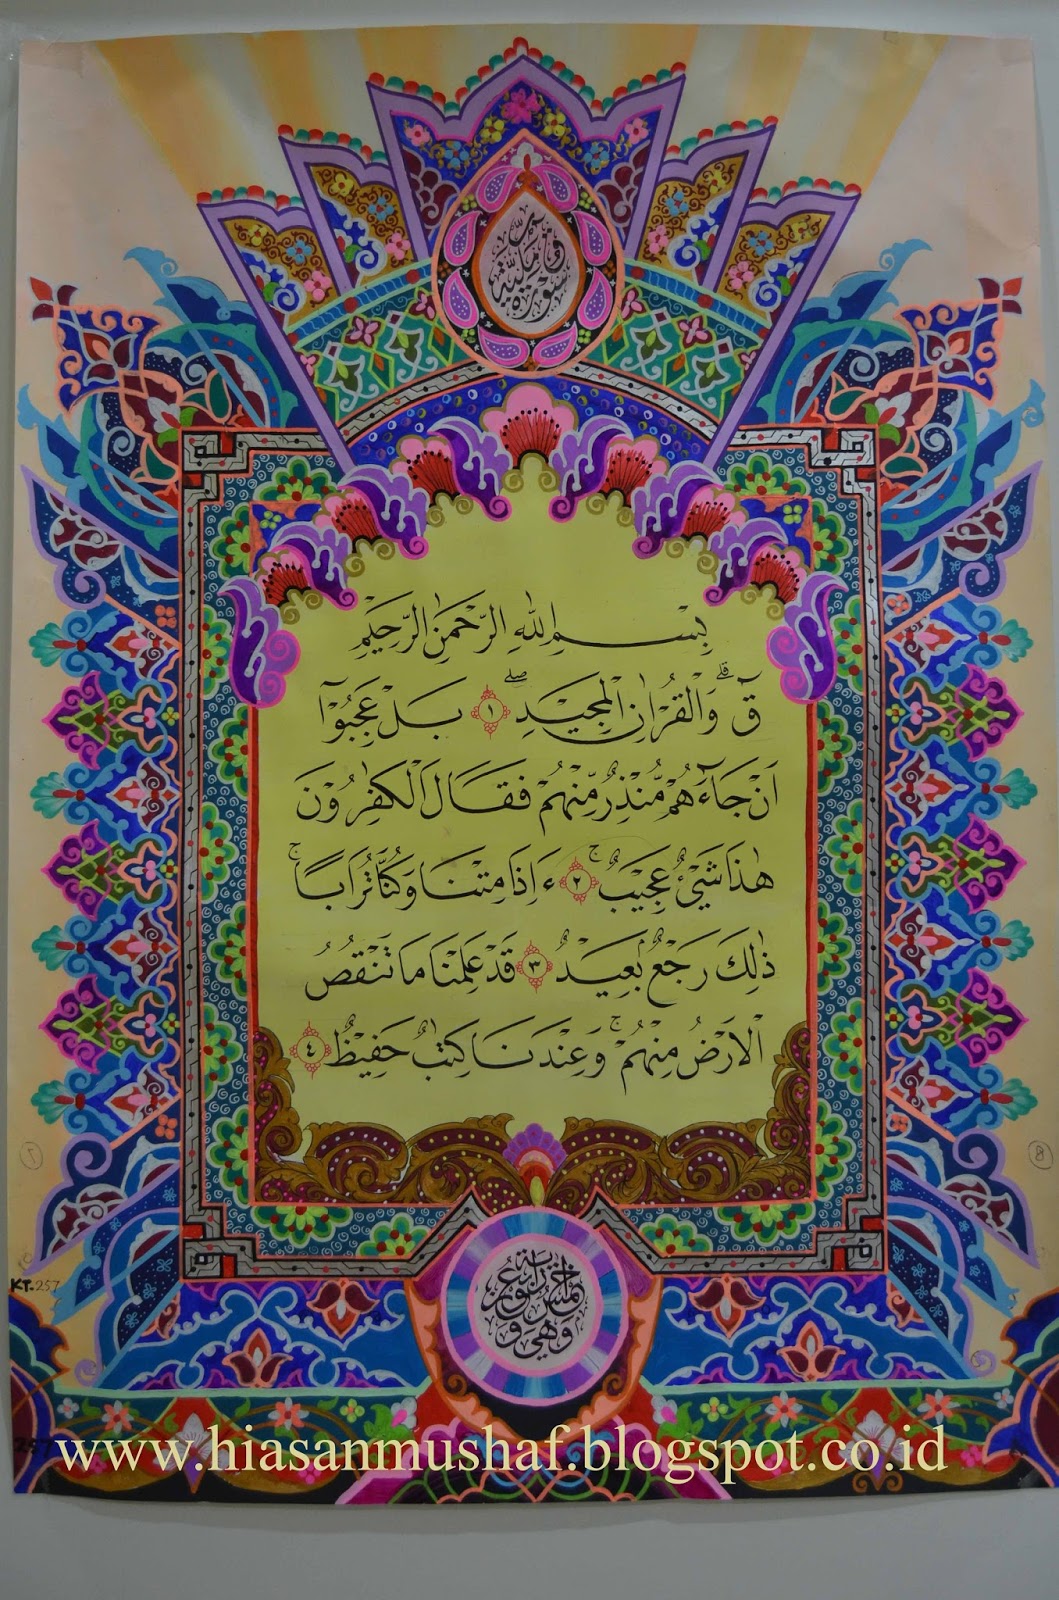 سورة ق مكية
بِسْمِ اللهِ الرَّحْمٰنِ الرَّحِيْمِ
قۤ ۗ وَالْقُرْاٰنِ الْمَجِيْدِ ۖ ١ بَلْ عَجِبُوْٓا
اَنْ جَاۤءَهُمْ مُّنْذِرٌ مِّنْهُمْ فَقَالَ الْكٰفِرُوْنَ
هٰذَا شَيْءٌ عَجِيْبٌ ۚ ٢ ءَاِذَا مِتْنَا وَكُنَّا تُرَابًا ۚ
ذٰلِكَ رَجْعٌ بَعِيْدٌ ٣ قَدْ عَلِمْنَا مَا تَنْقُصُ
الْاَرْضُ مِنْهُمْ ۚ وَعِنْدَنَا كِتٰبٌ حَفِيْظٌ ٤
وهي خمس و
8
KT.257
257
www.hiasanmushaf.blogspot.co.id